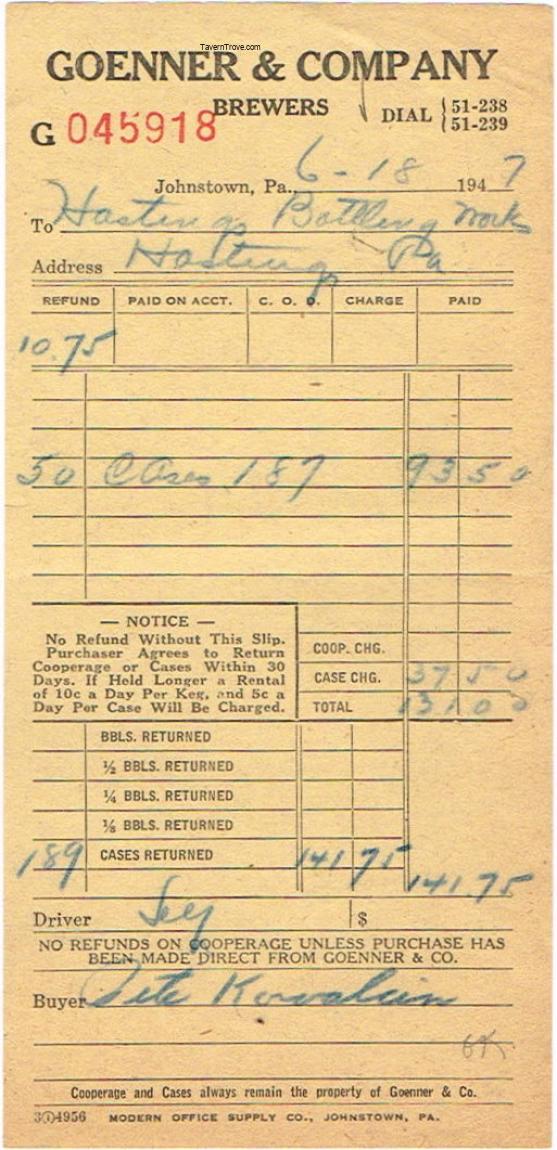 TavernTrove.com
GOENNER & COMPANY
BREWERS
DIAL { 51-238
51-239
G 045918
Johnstown, Pa., 6-18 1947
To Hastings Bottling Works
Address Hastings Pa
REFUND PAID ON ACCT. C. O. D. CHARGE PAID
10.75
50 Cases 187 93 50
— NOTICE —
No Refund Without This Slip.
Purchaser Agrees to Return
Cooperage or Cases Within 30
Days. If Held Longer a Rental
of 10c a Day Per Keg, and 5c a
Day Per Case Will Be Charged.
COOP. CHG.
CASE CHG. 37 50
TOTAL 131 00
BBLS. RETURNED
½ BBLS. RETURNED
¼ BBLS. RETURNED
⅛ BBLS. RETURNED
189 CASES RETURNED 141 75
141.75
Driver $
NO REFUNDS ON COOPERAGE UNLESS PURCHASE HAS
BEEN MADE DIRECT FROM GOENNER & CO.
Buyer Pete
OK
Cooperage and Cases always remain the property of Goenner & Co.
34956 MODERN OFFICE SUPPLY CO., JOHNSTOWN, PA.